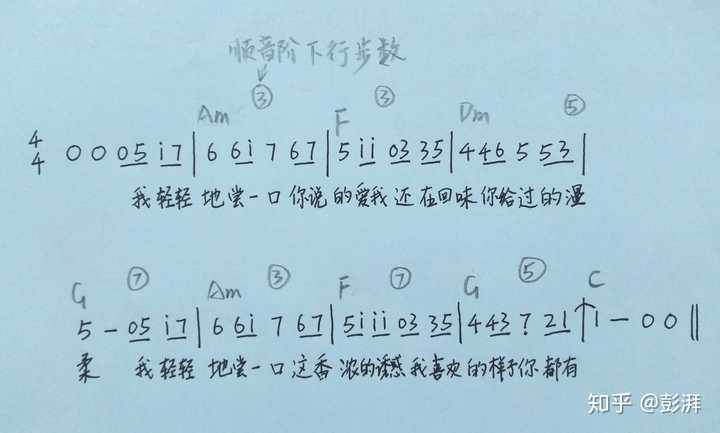 顺音阶下行步数
Am ③ F ③ Dm ⑤
4/4 0 0 05 i7 | 6 6i 7 67 | 5 ii 03 35 | 4 46 5 53 |
我轻轻 地尝一口 你说的爱我 还在回味 你给过的温
G ⑦ Am ③ F ⑦ G ⑤ C
5 - 05 i7 | 6 6i 7 67 | 5iii 03 35 | 4 43 7 21 ↑ 1 - 0 0 ||
柔 我轻轻 地尝一口 这香浓的诱惑 我喜欢的样子你都有
知乎 @彭湃